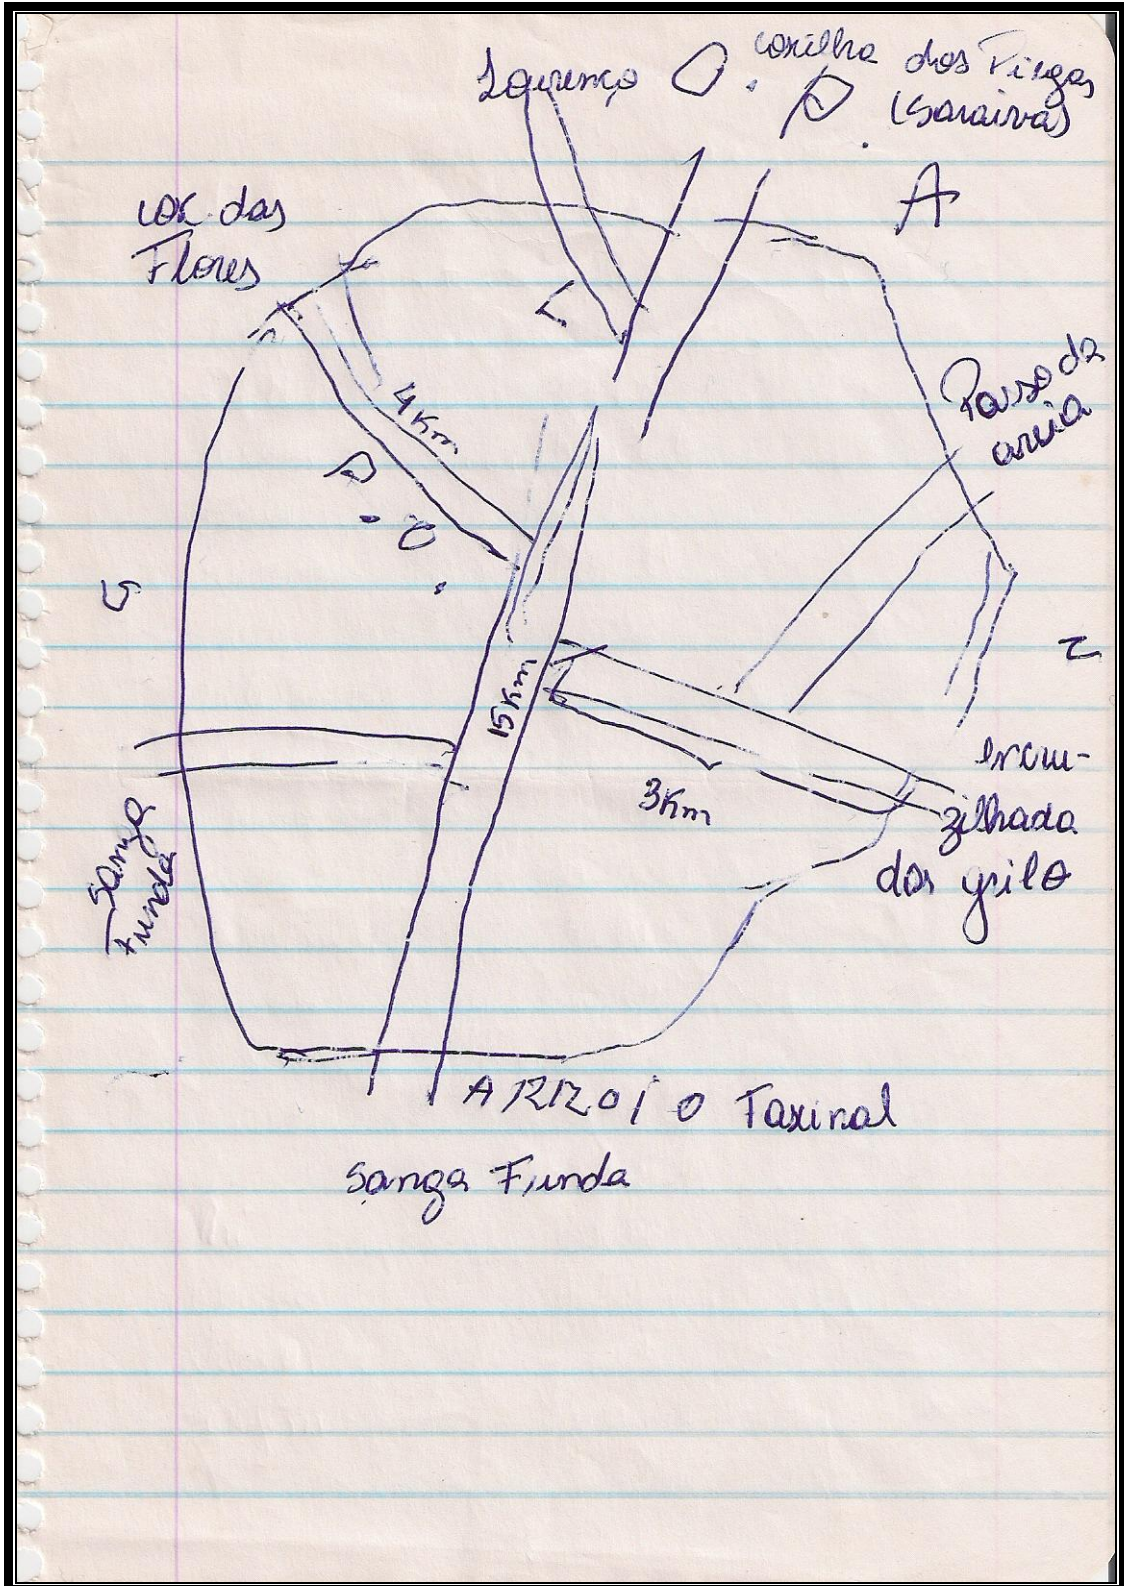 Lourenço
coxilha dos Piegas
(Saraiva)
A
cox. das
Flores
Passo da
areia
4Km
15Km
3Km
encru-
zilhada
dos grilo
Sanga
Funda
ARROIO Faxinal
Sanga Funda